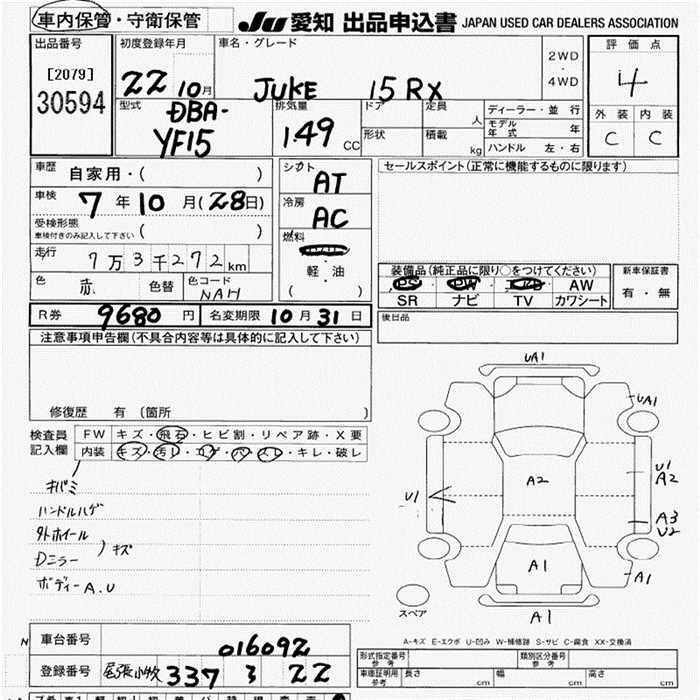 車内保管・守衛保管 JU 愛知 出品申込書 JAPAN USED CAR DEALERS ASSOCIATION
出品番号
[2079]
30594
初度登録年月
22 10月
車名・グレード
JUKE 15RX
2WD
・
4WD
評価点
4
外装 内装
C C
型式
DBA-
YF15
排気量
1.49 CC
ドア 定員
人
形状 積載
kg
ディーラー・並行
モデル年式 年
ハンドル 左・右
車歴
自家用・( )
車検
7年10月(28日)
受検形態
車検付きのみ記入して下さい ( )
走行
7万3千272km
色
赤 色替 色コード
NAH
シフト
AT
冷房
AC
燃料
軽・油
( )
セールスポイント(正常に機能するものに限ります)
装備品(純正品に限り○をつけてください)
PS PW エアB AW
SR ナビ TV カワシート
新車保証書
有・無
R券 9680円 名変期限 10月31日
後日品
注意事項申告欄(不具合内容等は具体的に記入して下さい)
修復歴 有(箇所 )
検査員
記入欄
FW キズ・飛石・ヒビ割・リペア跡・X要
内装 キズ・汚レ・コゲ・穴・スレ・キレ・破レ
キバミ
ハンドルハゲ
外ホイール
Dミラー
)キズ
ボディーA.U
UA1
UA1
U1
A2
A2
U1
A3
U2
A1
A1
A1
スペア
A-キズ E-エクボ U-凹み W-補修跡 S-サビ C-腐食 XX-交換済
車台番号 016092
登録番号 尾張小牧 337 3 22
形式指定番号
参考
類別区分番号
参考
車庫証明用
参考
長さ cm 幅 cm 高さ cm